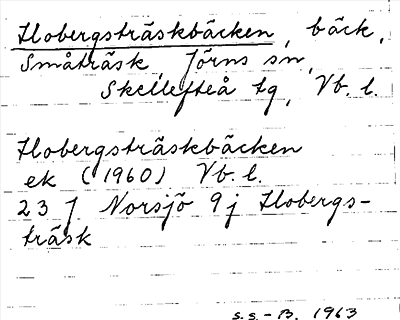 Hobergsträskbäcken, bäck,
Småträsk, Jörns sn,
Skellefteå tg, Vb. l.
Hobergsträskbäcken
ek (1960) Vb. l.
23 J Norsjö 9j Hobergs-
träsk
s.s.-B. 1963